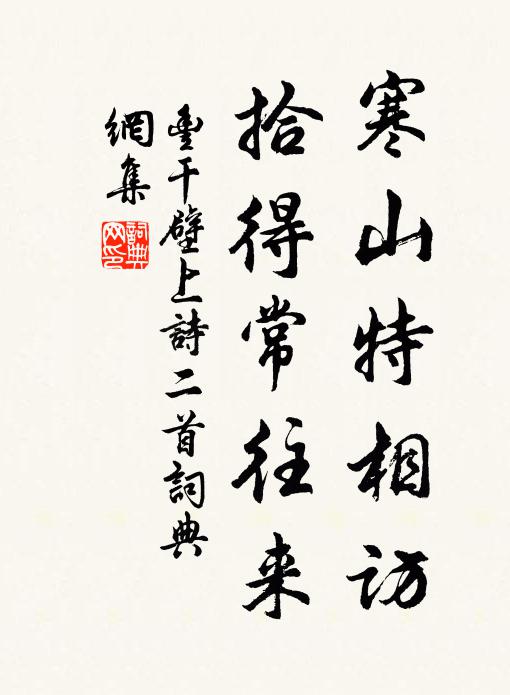 寒山特相访
拾得常往来
豐干壁上詩二首詞典
網集
詞典
网印